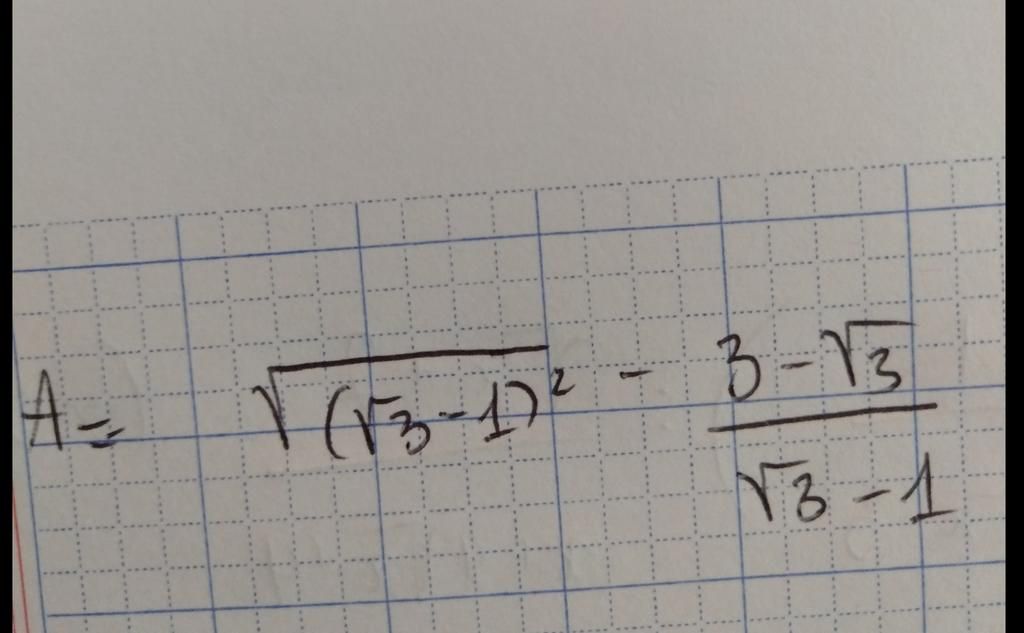 A = √(√3 - 1)² - (3 - √3)/(√3 - 1)